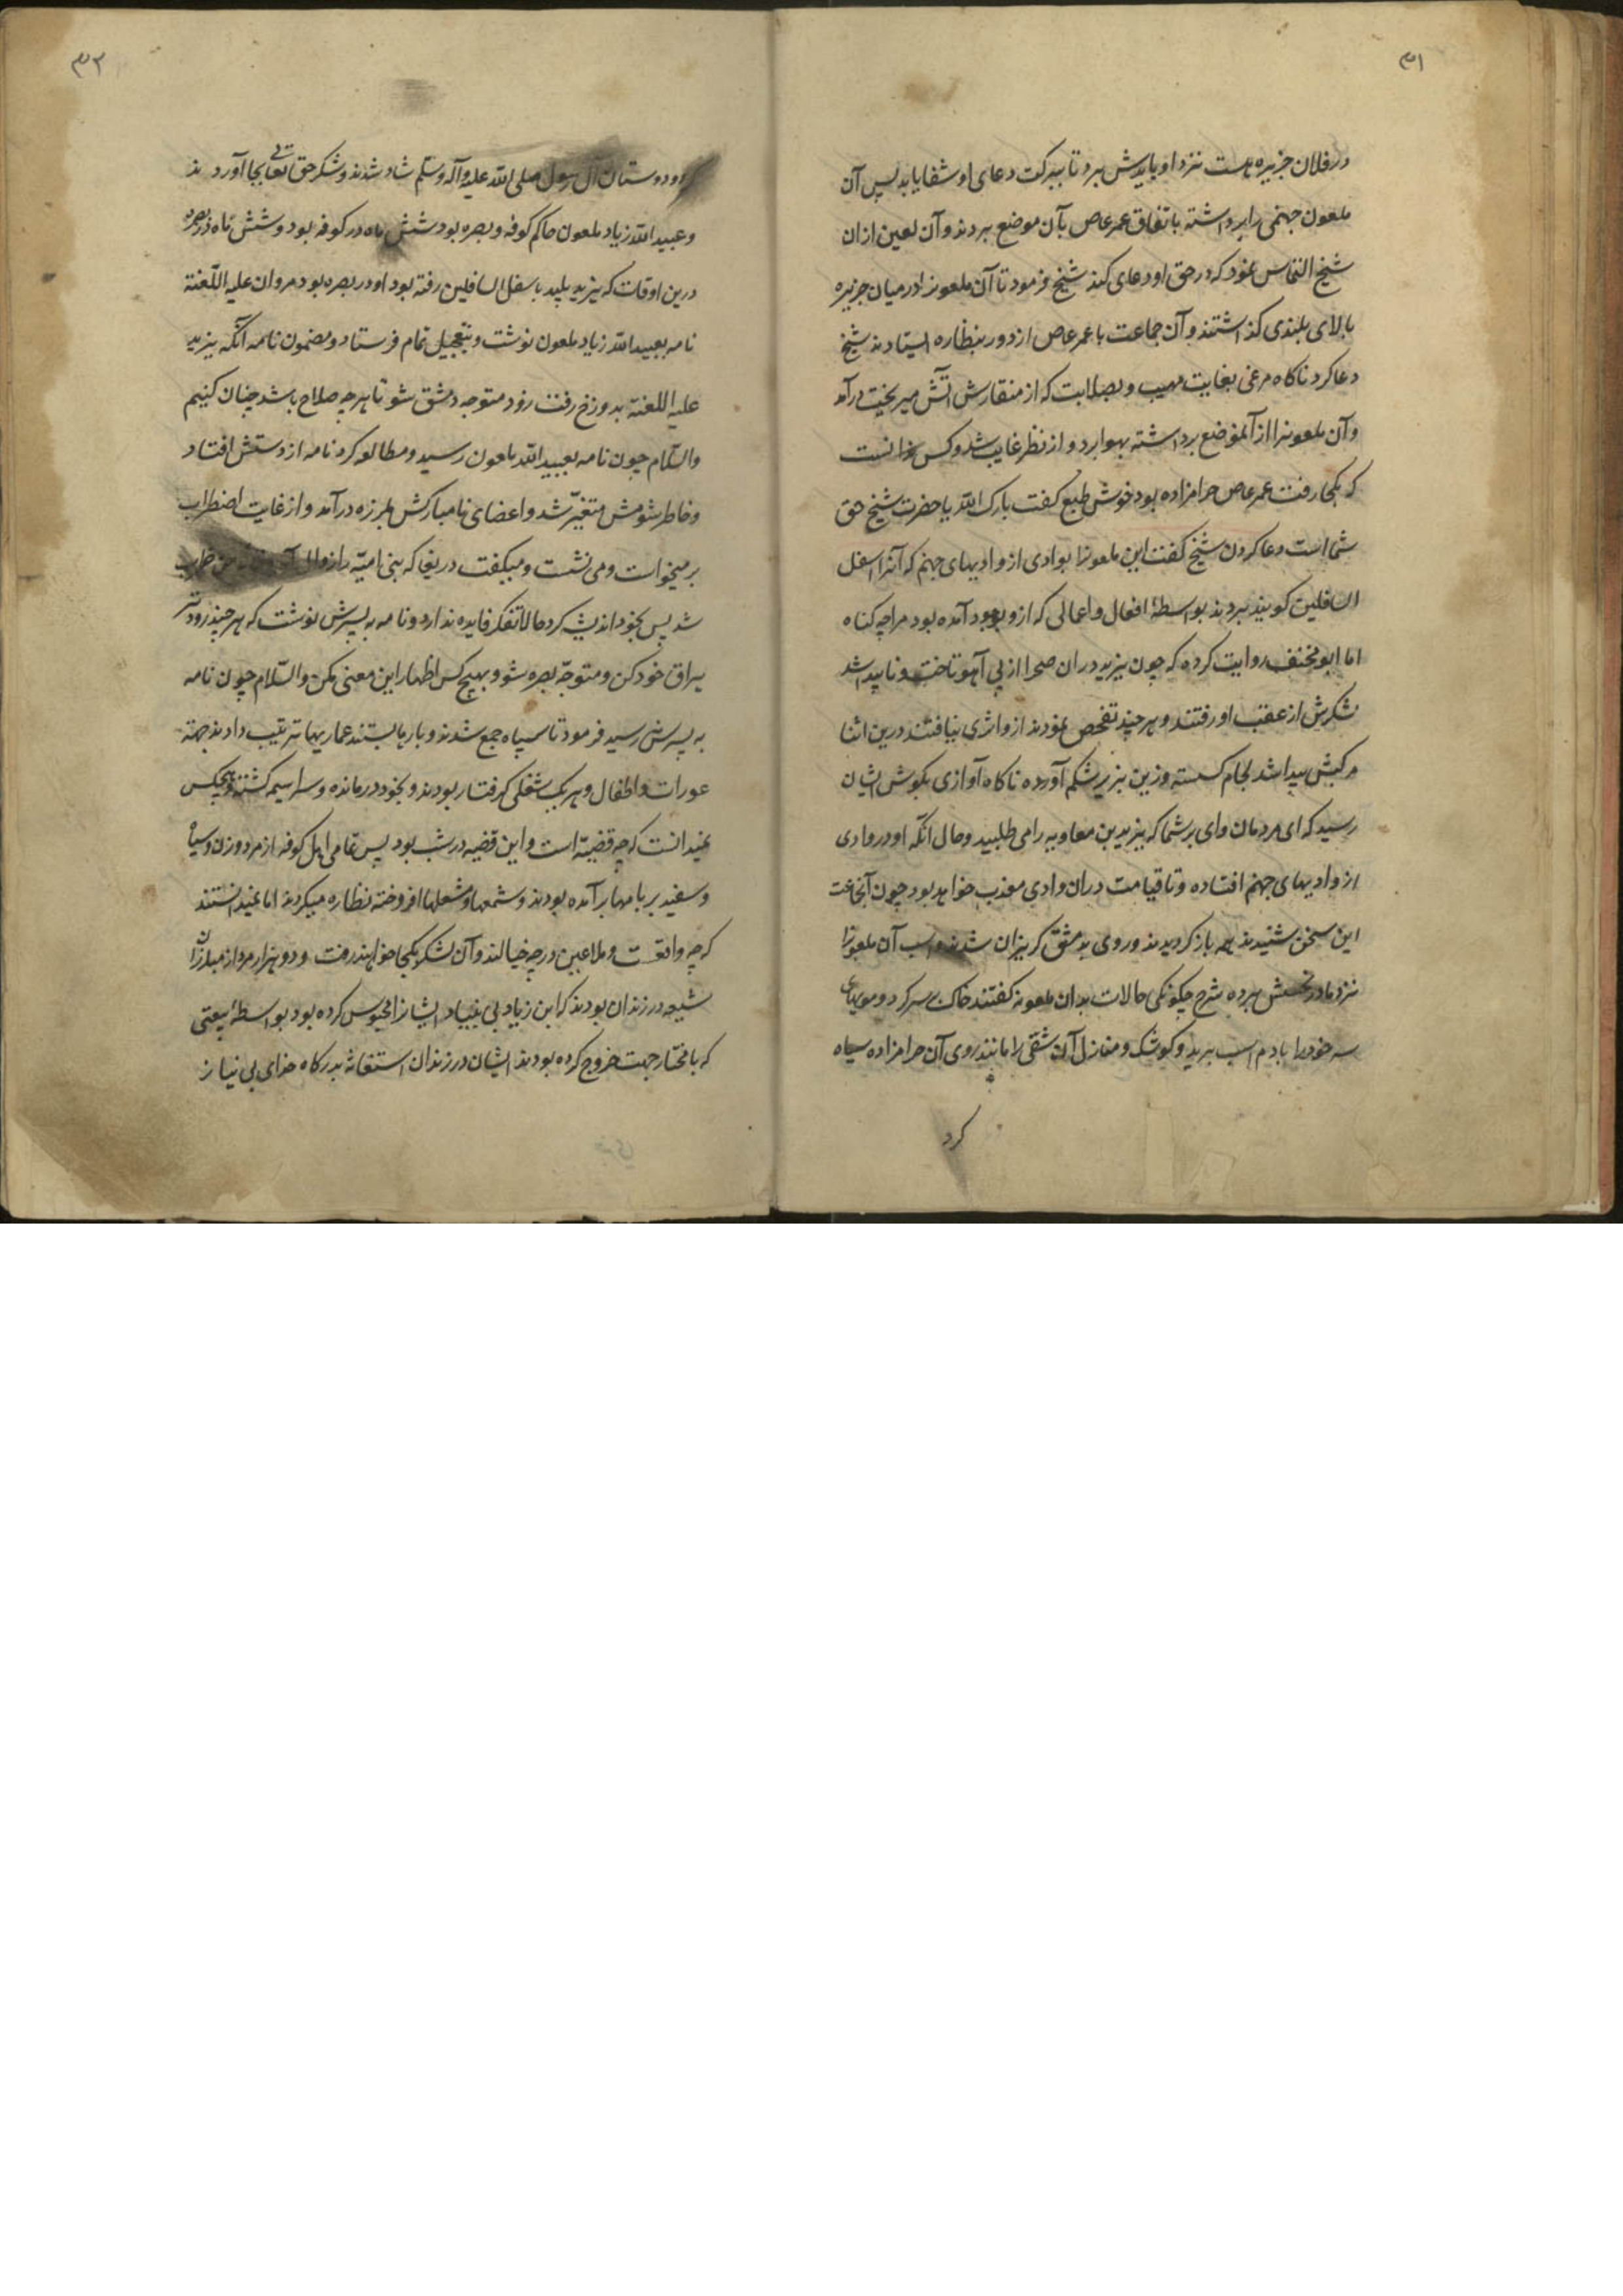 ۳۱
در فلان جزیره هست نزد او بایدش برد تا ببرکت دعای او شفا یابد پس آن
ملعون جهنمی را برداشته باتفاق عمر عاص بآن موضع بردند و آن لعین ازان
شیخ التماس نمود که در حق او دعای کند شیخ فرمود تا آن ملعونرا در میان جزیره
بالای بلندی کذاشتند و آن جماعت با عمر عاص از دور بنظاره ایستادند شیخ
دعا کرد ناکاه مرغی بغایت مهیب و بصلابت که از منقارش آتش میریخت درآمد
و آن ملعونرا از آنموضع برداشته بهوا برد و از نظر غایب شد و کس ندانست
که بکجا رفت عمر عاص حرامزاده بود خوش طبع کفت بارک الله یا حضرت شیخ حق
شما است دعا کردن شیخ کفت این ملعونرا بوادی از وادیهای جهنم که آنرا اسفل
السافلین کویند بردند بواسطهٔ افعال و اعمالی که ازو بوجود آمده بود مرا چه کناه
اما ابو مخنف روایت کرده که چون یزید دران صحرا از پی آهو تاخت و ناپیدا شد
لشکرش از عقب او رفتند و هرچند تفحص نمودند ازو اثری نیافتند درین اثنا
مرکبش پیدا شد لجام کسسته و زین بزیر شکم آورده ناکاه آوازی بکوش ایشان
رسید که ای مردمان وای بر شما که یزید بن معاویه را می طلبید و حال آنکه او در وادی
از وادیهای جهنم افتاده و تا قیامت دران وادی معذب خواهد بود چون آنجماعت
این سخن شنیدند همه باز کردیدند و روی بدمشق کریزان شدند و اسب آن ملعونرا
نزد مادر نحسش برده شرح چکونکی حالات بدان ملعونه کفتند خاک بر سر کرد و مویهای
سر خود را با دم اسب برید و کوشک و منازل آن شقی را مانند روی آن حرامزاده سیاه
کرد
۳۲
و دوستان آل رسول صلی الله علیه وآله وسلم شاد شدند و شکر حق تعالی بجا آوردند
و عبید الله زیاد ملعون حاکم کوفه و بصره بود شش ماه در کوفه بود و شش ماه در بصره
درین اوقات که یزید پلید باسفل السافلین رفته بود او در بصره بود مروان علیه اللعنة
نامه بعبید الله زیاد ملعون نوشت و بتعجیل تمام فرستاد و مضمون نامه آنکه یزید
علیه اللعنة بدوزخ رفت زود متوجه دمشق شو تا هرچه صلاح باشد چنان کنیم
والسلام چون نامه بعبید الله ملعون رسید و مطالعه کرد نامه از دستش افتاد
و خاطر شومش متغیّر شد و اعضای نامبارکش بلرزه درآمد و از غایت اضطراب
برمیخواست و می نشست و میکفت دریغا که بنی امیّه را زوال آمد
شد پس بخود اندیشه کرد حالا تفکر فایده ندارد و نامه به پسرش نوشت که هرچند زودتر
یراق خود کن و متوجّه بصره شو و بهیچ کس اظهار این معنی مکن والسّلام چون نامه
به پسرش رسید فرمود تا سپاه جمع شدند و بارها بستند عماریها ترتیب دادند جهته
عورات و اطفال و هر یک بشغلی کرفتار بودند و بخود درمانده و سراسیمه کشته و هیچکس
نمیدانست که چه قضیّه است و این قضیه در شب بود پس تمامی اهل کوفه از مرد و زن و سیاه
و سفید بر بامها برآمده بودند و شمعها و مشعلها افروخته نظاره میکردند اما نمیدانستند
که چه واقعست و ملاعین در چه خیالند و آن لشکر بکجا خواهند رفت و دو هزار مرد از مبارزان
شیعه در زندان بودند که ابن زیاد بی بنیاد ایشانرا محبوس کرده بود بواسطهٔ بیعتی
که با مختار جهت خروج کرده بودند ایشان در زندان استغاثه بدرکاه خدای بی نیاز